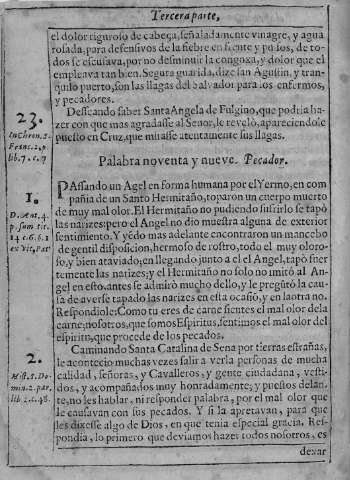 Tercera parte,
el dolor riguroso de cabeça, señaladamente vinagre, y agua
rosada, para defensivos de la fiebre en frente y pulsos, de to-
dos se escusava, por no desminuir la congoxa, y dolor que el
empleava tan bien. Segura guarida, dize san Agustin, y tran-
quilo puerto, son las llagas del Salvador para los enfermos,
y pecadores.
23.
In Chron. S.
Franc. 2. p
lib. 7. c. 7
Desseando saber Santa Angela de Fulgino, que podria ha-
zer con que mas agradasse al Señor, le revelò, apareciendole
puesto en Cruz, que mirasse atentamente sus llagas.
Palabra noventa y nueve. Pecador.
1.
D. Ant. 4.
p. sum. tit.
14 c. 6. §. 1
ex vit. Pat
PAssando un Agel en forma humana por el Yermo, en com
pañia de un Santo Hermitaño, toparon un cuerpo muerto
de muy mal olor. El Hermitaño no pudiendo sufrirlo se tapò
las narizes: pero el Angel no diò muestra alguna de exterior
sentimiento. Y yédo mas adelante encontraron un mancebo
de gentil disposicion, hermoso de rostro, todo el muy oloro-
so, y bien ataviado; en llegando junto a el el Angel, tapò fuer
temente las narizes; y el Hermitaño no solo no imitò al An-
gel en esto, antes se admirò mucho dello, y le pregũtò la cau-
sa de averse tapado las narizes en esta ocasiò, y en la otra no.
Respondiole: Como tu eres de carne sientes el mal olor de la
carne; nosotros, que somos Espiritus, sentimos el mal olor del
espiritu, que procede de los pecados.
2.
Hist. S. Do-
min. 2. par.
lib 2. c. 48.
Caminando Santa Catalina de Sena por tierras estrañas,
le acontecio muchas vezes salir a verla personas de mucha
calidad, señoras, y Cavalleros, y gente ciudadana, vesti-
dos, y acompañados muy honradamente; y puestos delan-
te, no les hablar, ni responder palabra, por el mal olor que
le causavan con sus pecados. Y si la apretavan, para que
les dixesse algo de Dios, en que tenia especial gracia. Res-
pondia, lo primero que deviamos hazer todos nosotros, es
dexar